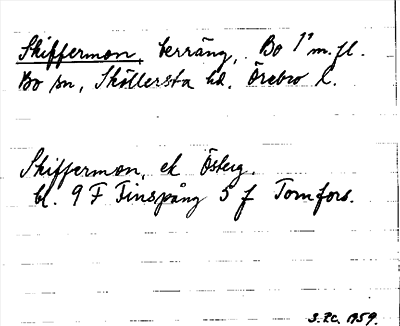 Skiffermon, terräng, Bo 1¹¹ m.fl.
Bo sn, Sköllersta hd. Örebro l.
Skiffermon, ek Österg.
bl. 9 F Finspång 5 f Tomfors.
S.Zc. 1959.